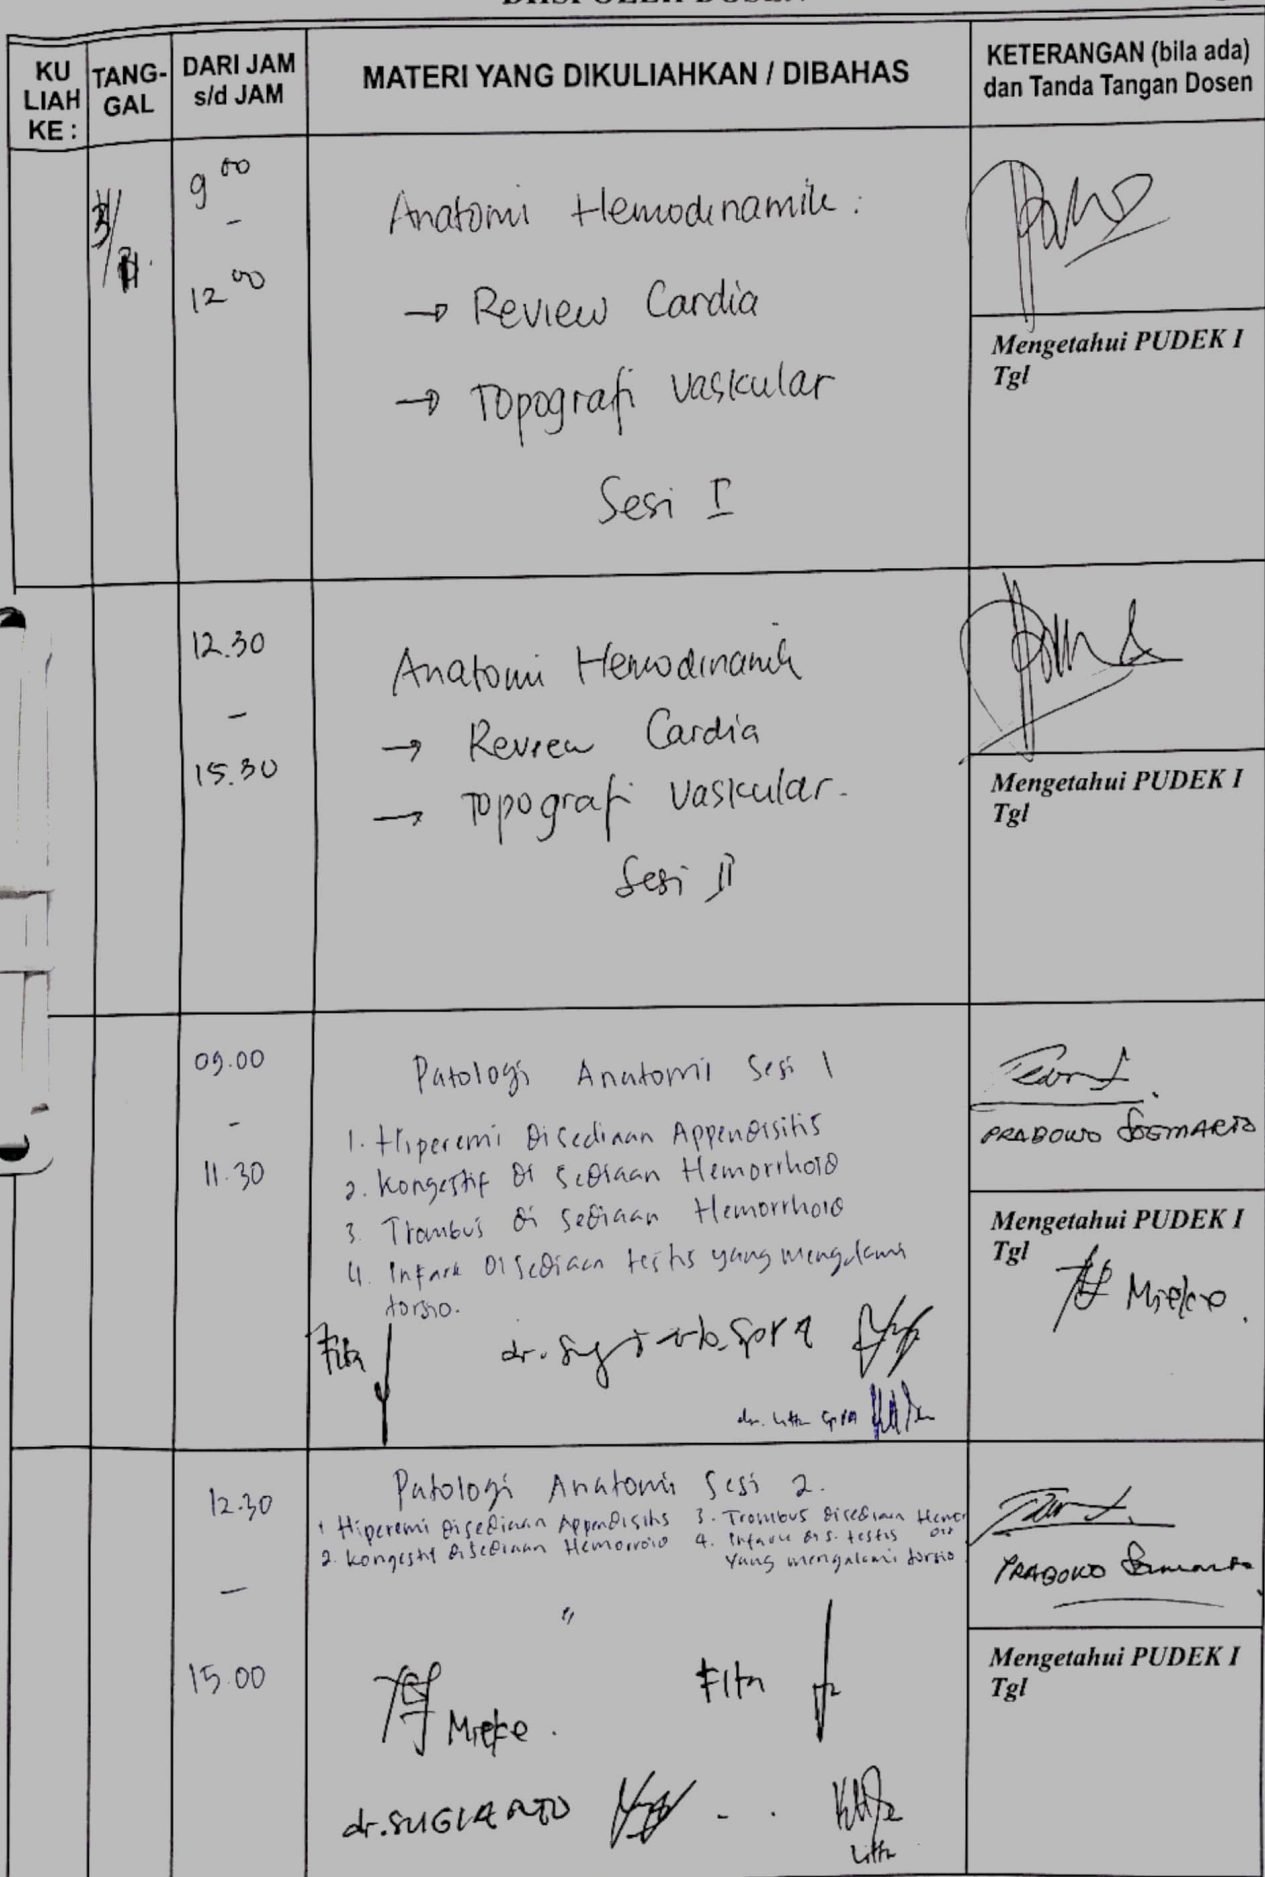 DIISI OLEH DOSEN
KU
LIAH
KE :
TANG-
GAL
DARI JAM
s/d JAM
MATERI YANG DIKULIAHKAN / DIBAHAS
KETERANGAN (bila ada)
dan Tanda Tangan Dosen
9 00
-
12 00
Anatomi Hemodinamik :
→ Review Cardia
→ Topografi vaskular
Sesi I
Mengetahui PUDEK I
Tgl
12.30
-
15.30
Anatomi Hemodinamik
→ Review Cardia
→ Topografi vaskular.
Sesi II
Mengetahui PUDEK I
Tgl
09.00
-
11.30
Patologi Anatomi Sesi 1
1. Hiperemi disediaan Appendisitis
2. Kongestif di sediaan Hemorrhoid
3. Trombus di sediaan Hemorrhoid
4. Infark disediaan testis yang mengalami
torsio.
Fita
PRABOWO SOEMARTO
Mengetahui PUDEK I
Tgl
Mieke
12.30
-
15.00
Patologi Anatomi Sesi 2.
1 Hiperemi disediaan Appendisitis 3. Trombus disediaan Hemor
2. Kongestif disediaan Hemorroid 4. Infark testis
yang mengalami torsio
"
Mieke.
Fita
dr. SUGIARTO
Litta
PRABOWO Soemarto
Mengetahui PUDEK I
Tgl